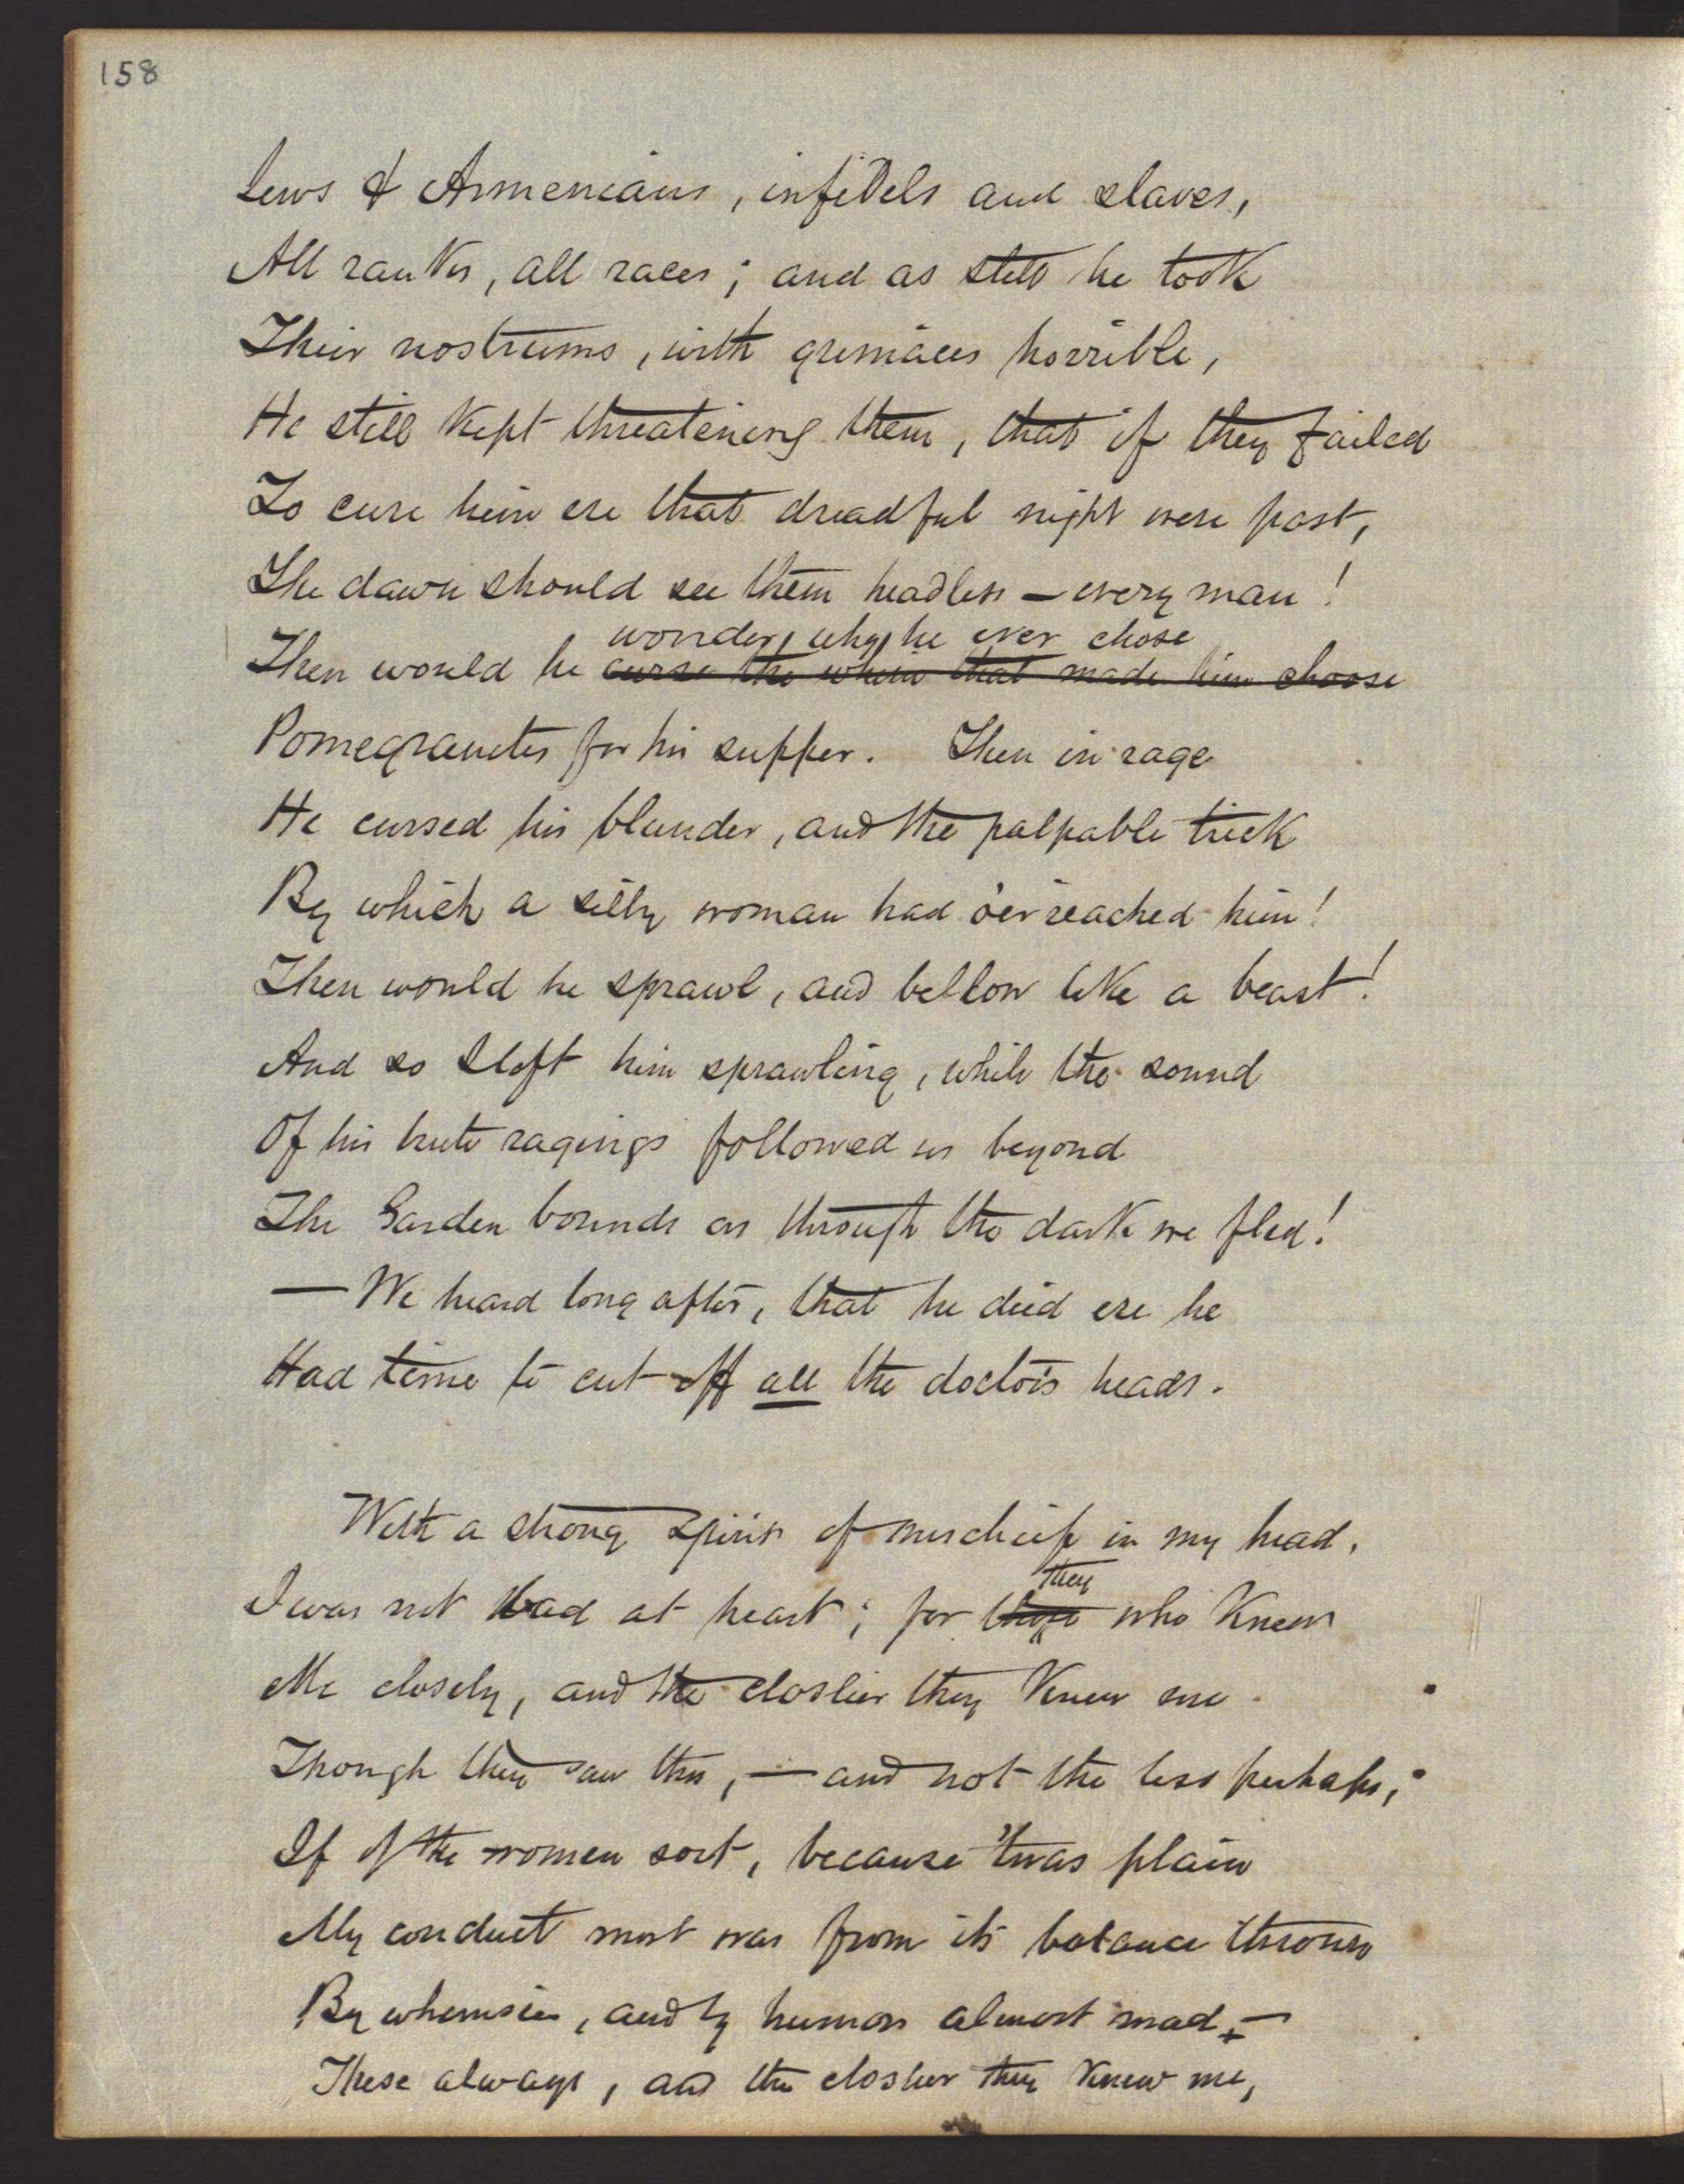 158
Jews & Armenians, infidels and slaves,
All ranks, all races; and as still he took
Their nostrums, with grimaces horrible,
He still kept threatening them, that if they failed
To cure him ere that dreadful night were past,
The dawn should see them headless — every man!
wonder, why, he ever chose
Then would he curse the whim that made him choose
Pomegranates for his supper. Then in rage
He cursed his blunder, and the palpable trick
By which a silly woman had o'erreached him!
Then would he sprawl, and bellow like a beast!
And so I left him sprawling, while the sound
Of his brute ragings followed us beyond
The Garden bounds as through the dark we fled!
— We heard long after, that he died ere he
Had time to cut off all the doctor's heads.
With a strong spirit of mischief in my head,
they
I was not bad at heart; for those who knew
Me closely, and the closlier they knew me.
Though they saw this, — and not the less perhaps,
If of the women sort, because 'twas plain
My conduct most was from its balance thrown
By whimsies, and by humors almost mad, —
These always, and the closlier they knew me,